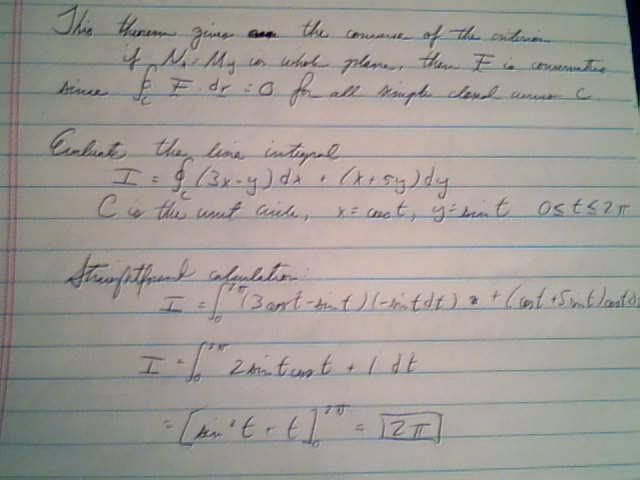 This theorem gives the converse of the criterion
if Nx = My in whole plane, then F is conservative
since ∮C F · dr = 0 for all simple closed curves C.
Evaluate the line integral
I = ∮C (3x-y)dx + (x+5y)dy
C is the unit circle, x = cos t, y = sin t 0≤t≤2π
Straightforward calculation:
I = ∫₀^2π (3cos t - sin t)(-sin t dt) + (cos t + 5 sin t) cos t dt
I = ∫₀^2π 2 sin t cos t + 1 dt
= [sin² t + t]₀^2π = 2π